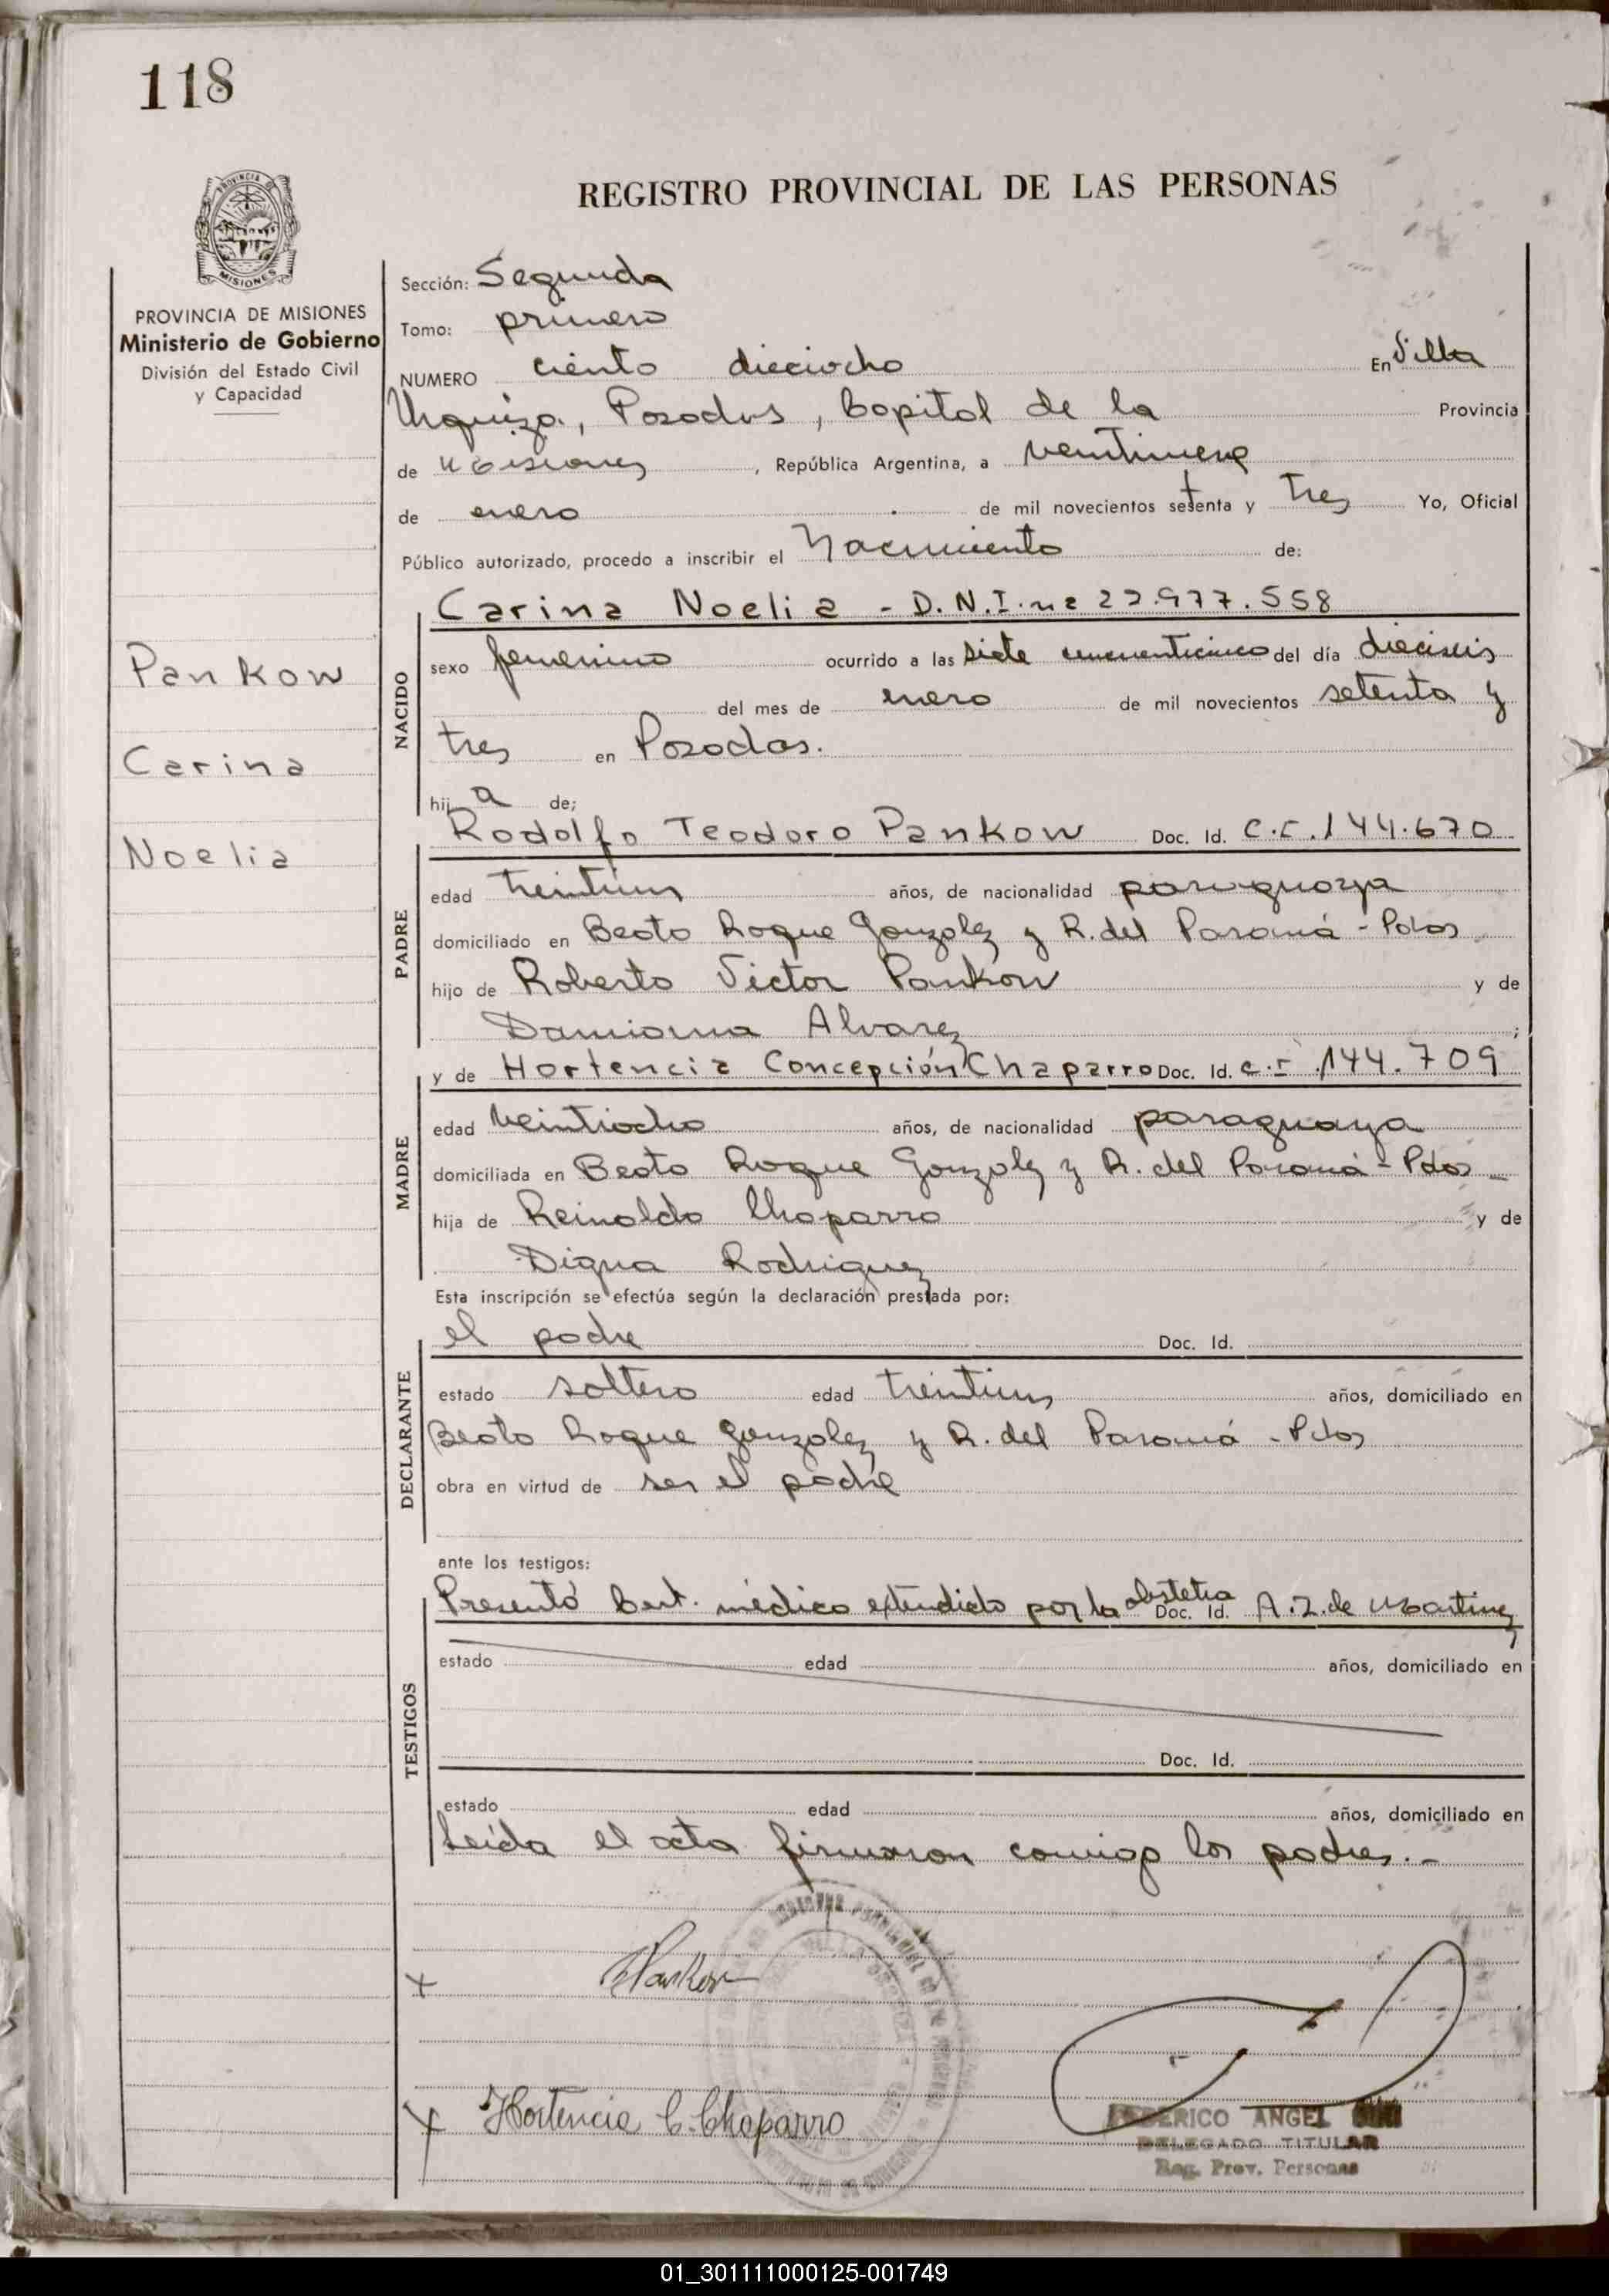 118
REGISTRO PROVINCIAL DE LAS PERSONAS
MISIONES
PROVINCIA DE MISIONES
Ministerio de Gobierno
División del Estado Civil
y Capacidad
Pankow
Carina
Noelia
Sección: Segunda
Tomo: primero
NUMERO ciento dieciocho En Villa
Urquiza, Posadas, Capital de la Provincia
de Misiones, República Argentina, a veintinueve
de enero de mil novecientos setenta y tres Yo, Oficial
Público autorizado, procedo a inscribir el Nacimiento de:
NACIDO
Carina Noelia - D.N.I. nº 22.977.558
sexo femenino ocurrido a las siete cincuenticinco del día dieciseis
del mes de enero de mil novecientos setenta y
tres en Posadas.
hij a de;
PADRE
Rodolfo Teodoro Pankow Doc. Id. C.I. 144.670
edad treintiun años, de nacionalidad paraguaya
domiciliado en Beato Roque Gonzalez y R. del Paraná - Pdas
hijo de Roberto Victor Pankow y de
Damiana Alvarez ;
MADRE
y de Hortencia Concepción Chaparro Doc. Id. C.I. 144.709
edad veintiocho años, de nacionalidad paraguaya
domiciliada en Beato Roque Gonzalez y R. del Paraná - Pdas
hija de Reinaldo Chaparro y de
Digna Rodriguez
Esta inscripción se efectúa según la declaración prestada por:
DECLARANTE
el padre Doc. Id.
estado soltero edad treintiun años, domiciliado en
Beato Roque Gonzalez y R. del Paraná - Pdas
obra en virtud de ser el padre
ante los testigos:
TESTIGOS
Presentó Cert. médico extendido por la obstetra Doc. Id. A.Z. de Martinez
estado edad años, domiciliado en
Doc. Id.
estado edad años, domiciliado en
Leída el acta firmaron conmigo los padres.-
Pankow
Hortencia C. Chaparro
FEDERICO ANGEL
DELEGADO TITULAR
Reg. Prov. Personas
01_301111000125-001749